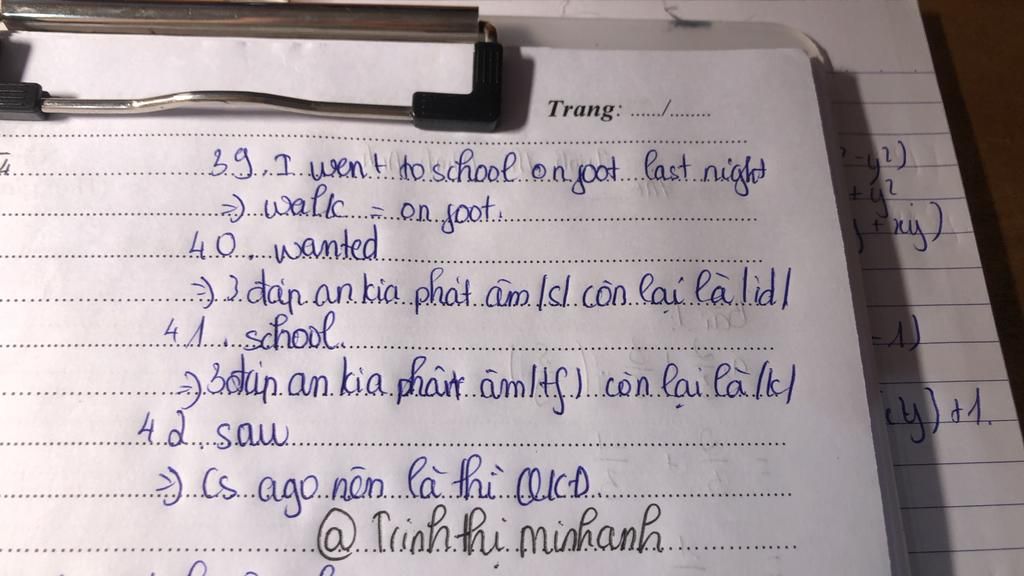 Trang: ....../........
39. I went to school on foot last night
=> walk = on foot.
40. wanted
=> 3 đáp an kia phát âm /s/ còn lại là /id/
41. school.
=> 3 đáp an kia phát âm /tʃ/ còn lại là /k/
42. saw
=> Cs ago nên là thì QKD
@ Trinh thị minhanh
-y²)
+y²
+xy)
-1)
y)+1.